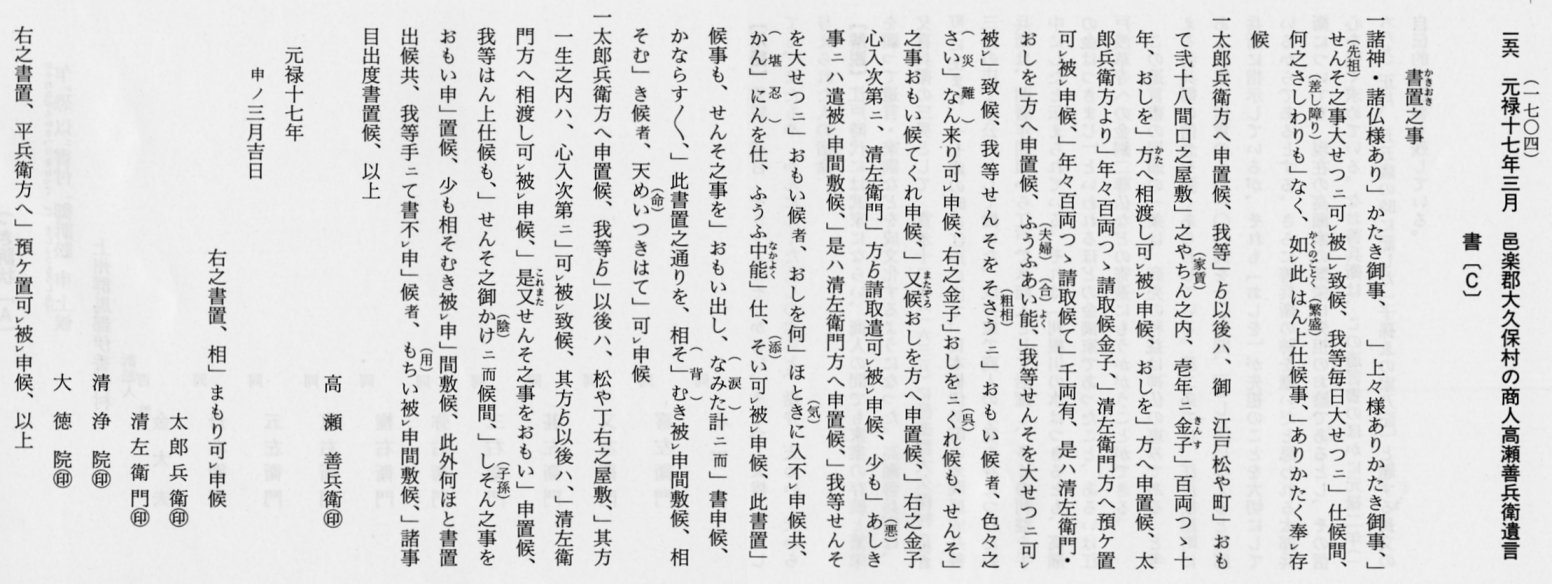 (一七〇四)
一五 元禄十七年三月 邑楽郡大久保村の商人高瀬善兵衛遺言
書〔C〕
書置之事
一諸神・諸仏様あり」かたき御事、」上々様ありかたき御事、」
せんそ之事大せつニ可㆑被」㆑致候、我等毎日大せつニ」仕候間、
何之さしわりも」なく、如㆑此はん上仕候事」ありかたく奉㆑存
候
一太郎兵衛方へ申置候、我等」ゟ以後ハ、御江戸松や町」おも
て弐十八間口之屋敷」之やちん之内、壱年ニ金子」百両つゝ十
年、おしを」方へ相渡し可㆑被㆑申候、おしを」方へ申置候、太
郎兵衛方より」年々百両つゝ請取候金子、」清左衛門方へ預ケ置
可㆑被㆑申候、」年々百両つゝ請取候て」千両有、是ハ清左衛門・
おしを」方へ申置候、ふうふあい能、」我等せんそを大せつニ可
被」㆑致候、我等せんそをそさうニ」おもい候者、色々之
さい」なん来り可㆑申候、右之金子」おしを」くれ候も、せんそ」
之事おもい候てくれ申候、」又候おしを方へ申置候、」右之金子
心入次第ニ、清左衛門」方ゟ請取遣可㆑被㆑申候、少も」あしき
事ニハ遣被㆑申間敷候、」是ハ清左衛門方へ申置候、」我等せんそ
を大せつニ」おもい候者、おしを何」ほときに入不㆑申候共、
かん」にんを仕、ふうふ中能」仕、そい可㆑被㆑申候、此書置」
候事も、せんそ之事を」おもい出し、なみた計ニ而」書申候、
かならす〱、」此書置之通りを、相そ」むき被㆑申間敷候、相
そむ」き候者、天めいつきはて」可㆑申候
一太郎兵衛方へ申置候、我等ゟ」以後ハ、松や丁右之屋敷、」其方
一生之内ハ、心入次第ニ」可㆑被㆑致候、其方ゟ以後ハ、清左衛
門方へ相渡し可㆑被㆑申候、」是又せんそ之事をおもい」申置候、
我等はん上仕候も、」せんそ之御かけニ而候間、」しそん之事を
おもい申」置候、少も相そむき被㆑申」間敷候、此外何ほと書置
出候共、我等手ニて書不㆑申」候者、もちい被㆑申間敷候、」諸事
目出度書置候、以上
元禄十七年
申ノ三月吉日
高瀬善兵衛㊞
右之書置、相」まもり可㆑申候
太郎兵衛㊞
清左衛門㊞
清浄院㊞
大徳院㊞
右之書置、平兵衛方へ」預ケ置可㆑被㆑申候、以上